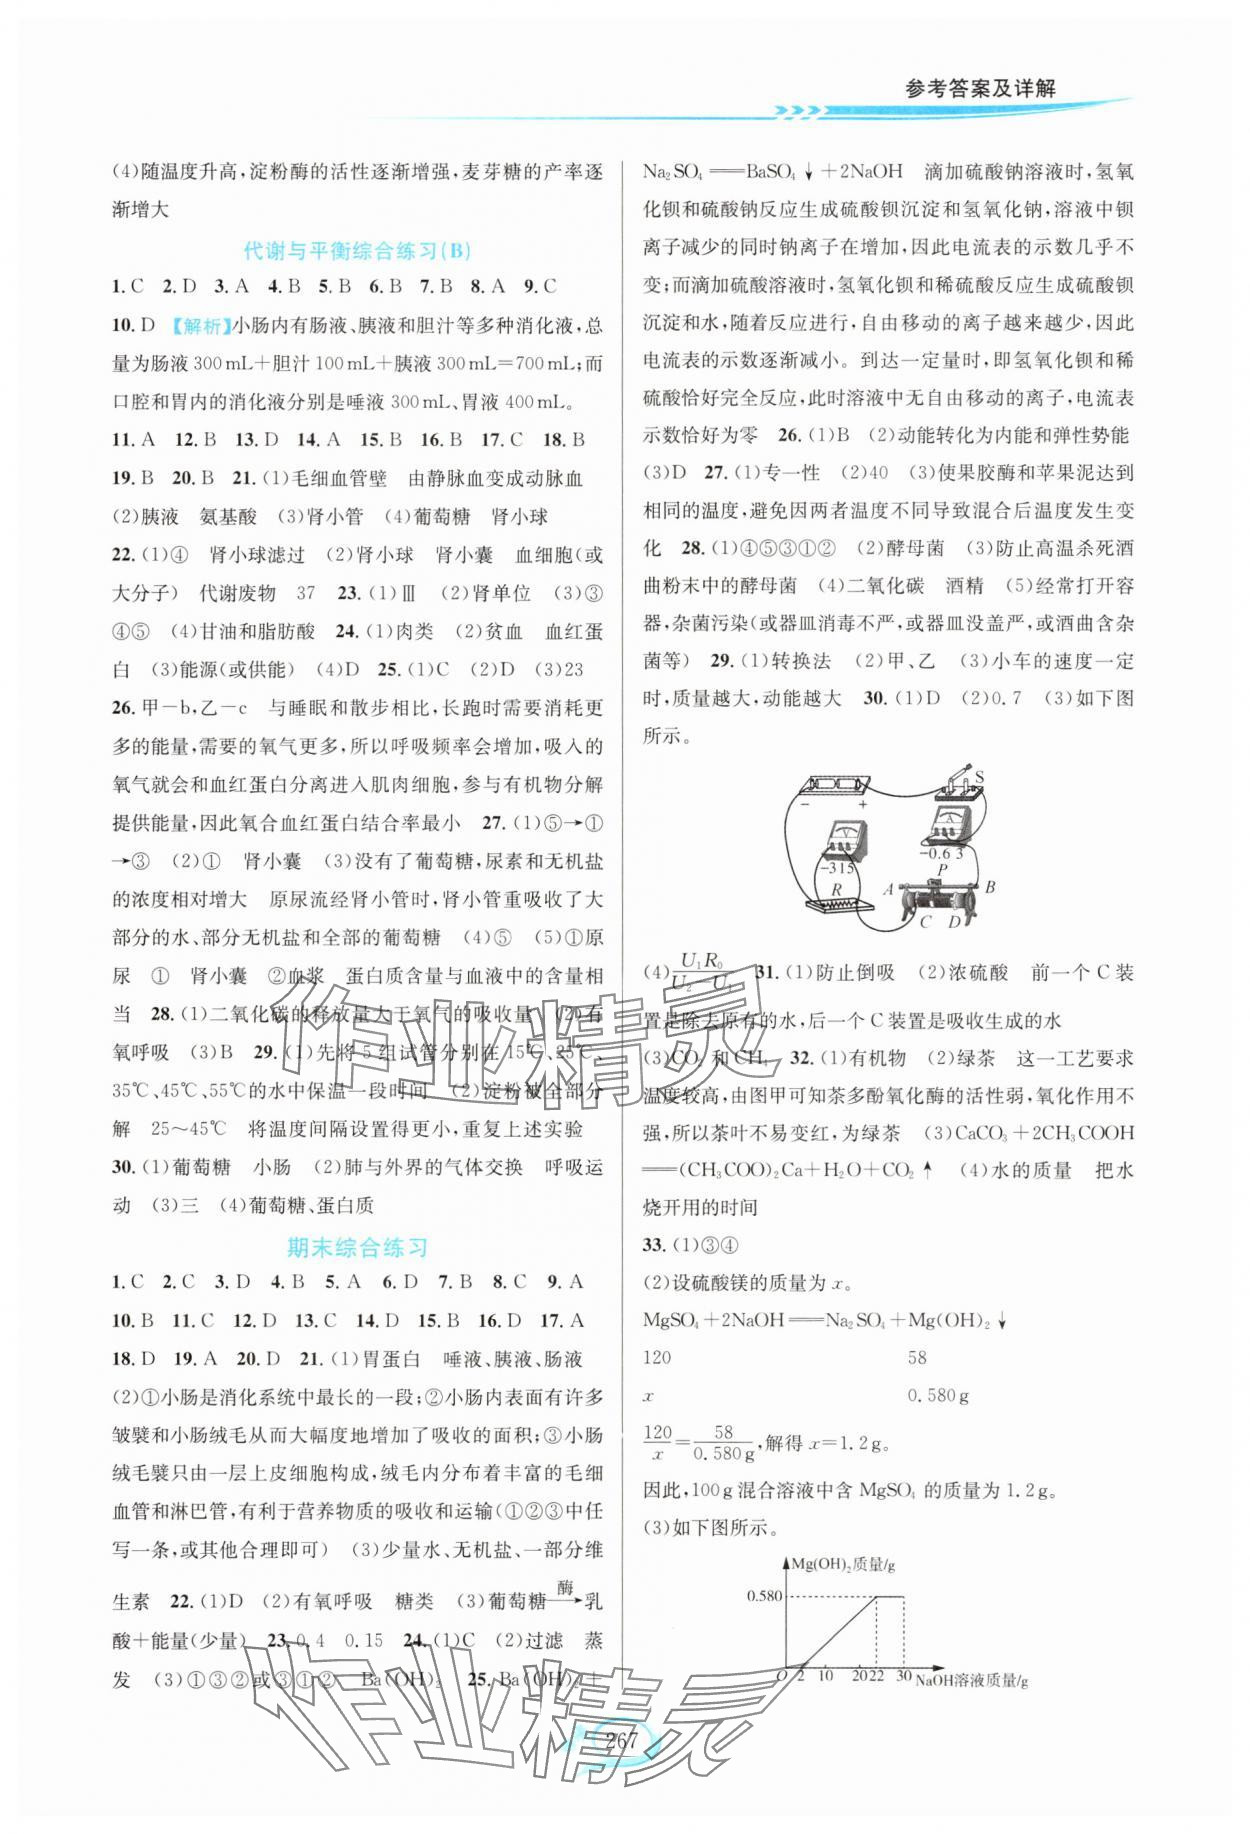 参考答案及详解
(4)随温度升高,淀粉酶的活性逐渐增强,麦芽糖的产率逐
渐增大
代谢与平衡综合练习(B)
1. C 2. D 3. A 4. B 5. B 6. B 7. B 8. A 9. C
10. D 【解析】小肠内有肠液、胰液和胆汁等多种消化液,总
量为肠液 300 mL+胆汁 100 mL+胰液 300 mL=700 mL;而
口腔和胃内的消化液分别是唾液 300 mL、胃液 400 mL。
11. A 12. B 13. D 14. A 15. B 16. B 17. C 18. B
19. B 20. B 21. (1)毛细血管壁 由静脉血变成动脉血
(2)胰液 氨基酸 (3)肾小管 (4)葡萄糖 肾小球
22. (1)④ 肾小球滤过 (2)肾小球 肾小囊 血细胞(或
大分子) 代谢废物 37 23. (1)Ⅲ (2)肾单位 (3)③
④⑤ (4)甘油和脂肪酸 24. (1)肉类 (2)贫血 血红蛋
白 (3)能源(或供能) (4)D 25. (1)C (2)D (3)23
26. 甲-b,乙-c 与睡眠和散步相比,长跑时需要消耗更
多的能量,需要的氧气更多,所以呼吸频率会增加,吸入的
氧气就会和血红蛋白分离进入肌肉细胞,参与有机物分解
提供能量,因此氧合血红蛋白结合率最小 27. (1)⑤→①
→③ (2)① 肾小囊 (3)没有了葡萄糖,尿素和无机盐
的浓度相对增大 原尿流经肾小管时,肾小管重吸收了大
部分的水、部分无机盐和全部的葡萄糖 (4)⑤ (5)①原
尿 ① 肾小囊 ②血浆 蛋白质含量与血液中的含量相
当 28. (1)二氧化碳的释放量大于氧气的吸收量 (2)有
氧呼吸 (3)B 29. (1)先将 5 组试管分别在 15℃、25℃、
35℃、45℃、55℃的水中保温一段时间 (2)淀粉被全部分
解 25~45℃ 将温度间隔设置得更小,重复上述实验
30. (1)葡萄糖 小肠 (2)肺与外界的气体交换 呼吸运
动 (3)三 (4)葡萄糖、蛋白质
期末综合练习
1. C 2. C 3. D 4. B 5. A 6. D 7. B 8. C 9. A
10. B 11. C 12. D 13. C 14. D 15. B 16. D 17. A
18. D 19. A 20. D 21. (1)胃蛋白 唾液、胰液、肠液
(2)①小肠是消化系统中最长的一段;②小肠内表面有许多
皱襞和小肠绒毛从而大幅度地增加了吸收的面积;③小肠
绒毛襞只由一层上皮细胞构成,绒毛内分布着丰富的毛细
血管和淋巴管,有利于营养物质的吸收和运输(①②③中任
写一条,或其他合理即可) (3)少量水、无机盐、一部分维
生素 22. (1)D (2)有氧呼吸 糖类 (3)葡萄糖 酶→ 乳
酸+能量(少量) 23. 0.4 0.15 24. (1)C (2)过滤 蒸
发 (3)①③②或③①② Ba(OH)₂ 25. Ba(OH)₂+
Na₂SO₄══BaSO₄↓+2NaOH 滴加硫酸钠溶液时,氢氧
化钡和硫酸钠反应生成硫酸钡沉淀和氢氧化钠,溶液中钡
离子减少的同时钠离子在增加,因此电流表的示数几乎不
变;而滴加硫酸溶液时,氢氧化钡和稀硫酸反应生成硫酸钡
沉淀和水,随着反应进行,自由移动的离子越来越少,因此
电流表的示数逐渐减小。到达一定量时,即氢氧化钡和稀
硫酸恰好完全反应,此时溶液中无自由移动的离子,电流表
示数恰好为零 26. (1)B (2)动能转化为内能和弹性势能
(3)D 27. (1)专一性 (2)40 (3)使果胶酶和苹果泥达到
相同的温度,避免因两者温度不同导致混合后温度发生变
化 28. (1)④⑤③①② (2)酵母菌 (3)防止高温杀死酒
曲粉末中的酵母菌 (4)二氧化碳 酒精 (5)经常打开容
器,杂菌污染(或器皿消毒不严,或器皿没盖严,或酒曲含杂
菌等) 29. (1)转换法 (2)甲、乙 (3)小车的速度一定
时,质量越大,动能越大 30. (1)D (2)0.7 (3)如下图
所示。
S
− +
−0.6 3
−315
P
A B
R
C D
(4)U₁R₀/(U₂−U₁) 31. (1)防止倒吸 (2)浓硫酸 前一个 C 装
置是除去原有的水,后一个 C 装置是吸收生成的水
(3)CO₂ 和 CH₄ 32. (1)有机物 (2)绿茶 这一工艺要求
温度较高,由图甲可知茶多酚氧化酶的活性弱,氧化作用不
强,所以茶叶不易变红,为绿茶 (3)CaCO₃+2CH₃COOH
══(CH₃COO)₂Ca+H₂O+CO₂↑ (4)水的质量 把水
烧开用的时间
33. (1)③④
(2)设硫酸镁的质量为 x。
MgSO₄+2NaOH══Na₂SO₄+Mg(OH)₂↓
120 58
x 0.580 g
120/x=58/0.580 g,解得 x=1.2 g。
因此,100 g 混合溶液中含 MgSO₄ 的质量为 1.2 g。
(3)如下图所示。
Mg(OH)₂质量/g
0.580
O 2 10 20 22 30 NaOH溶液质量/g
267
作业精灵
作业精灵